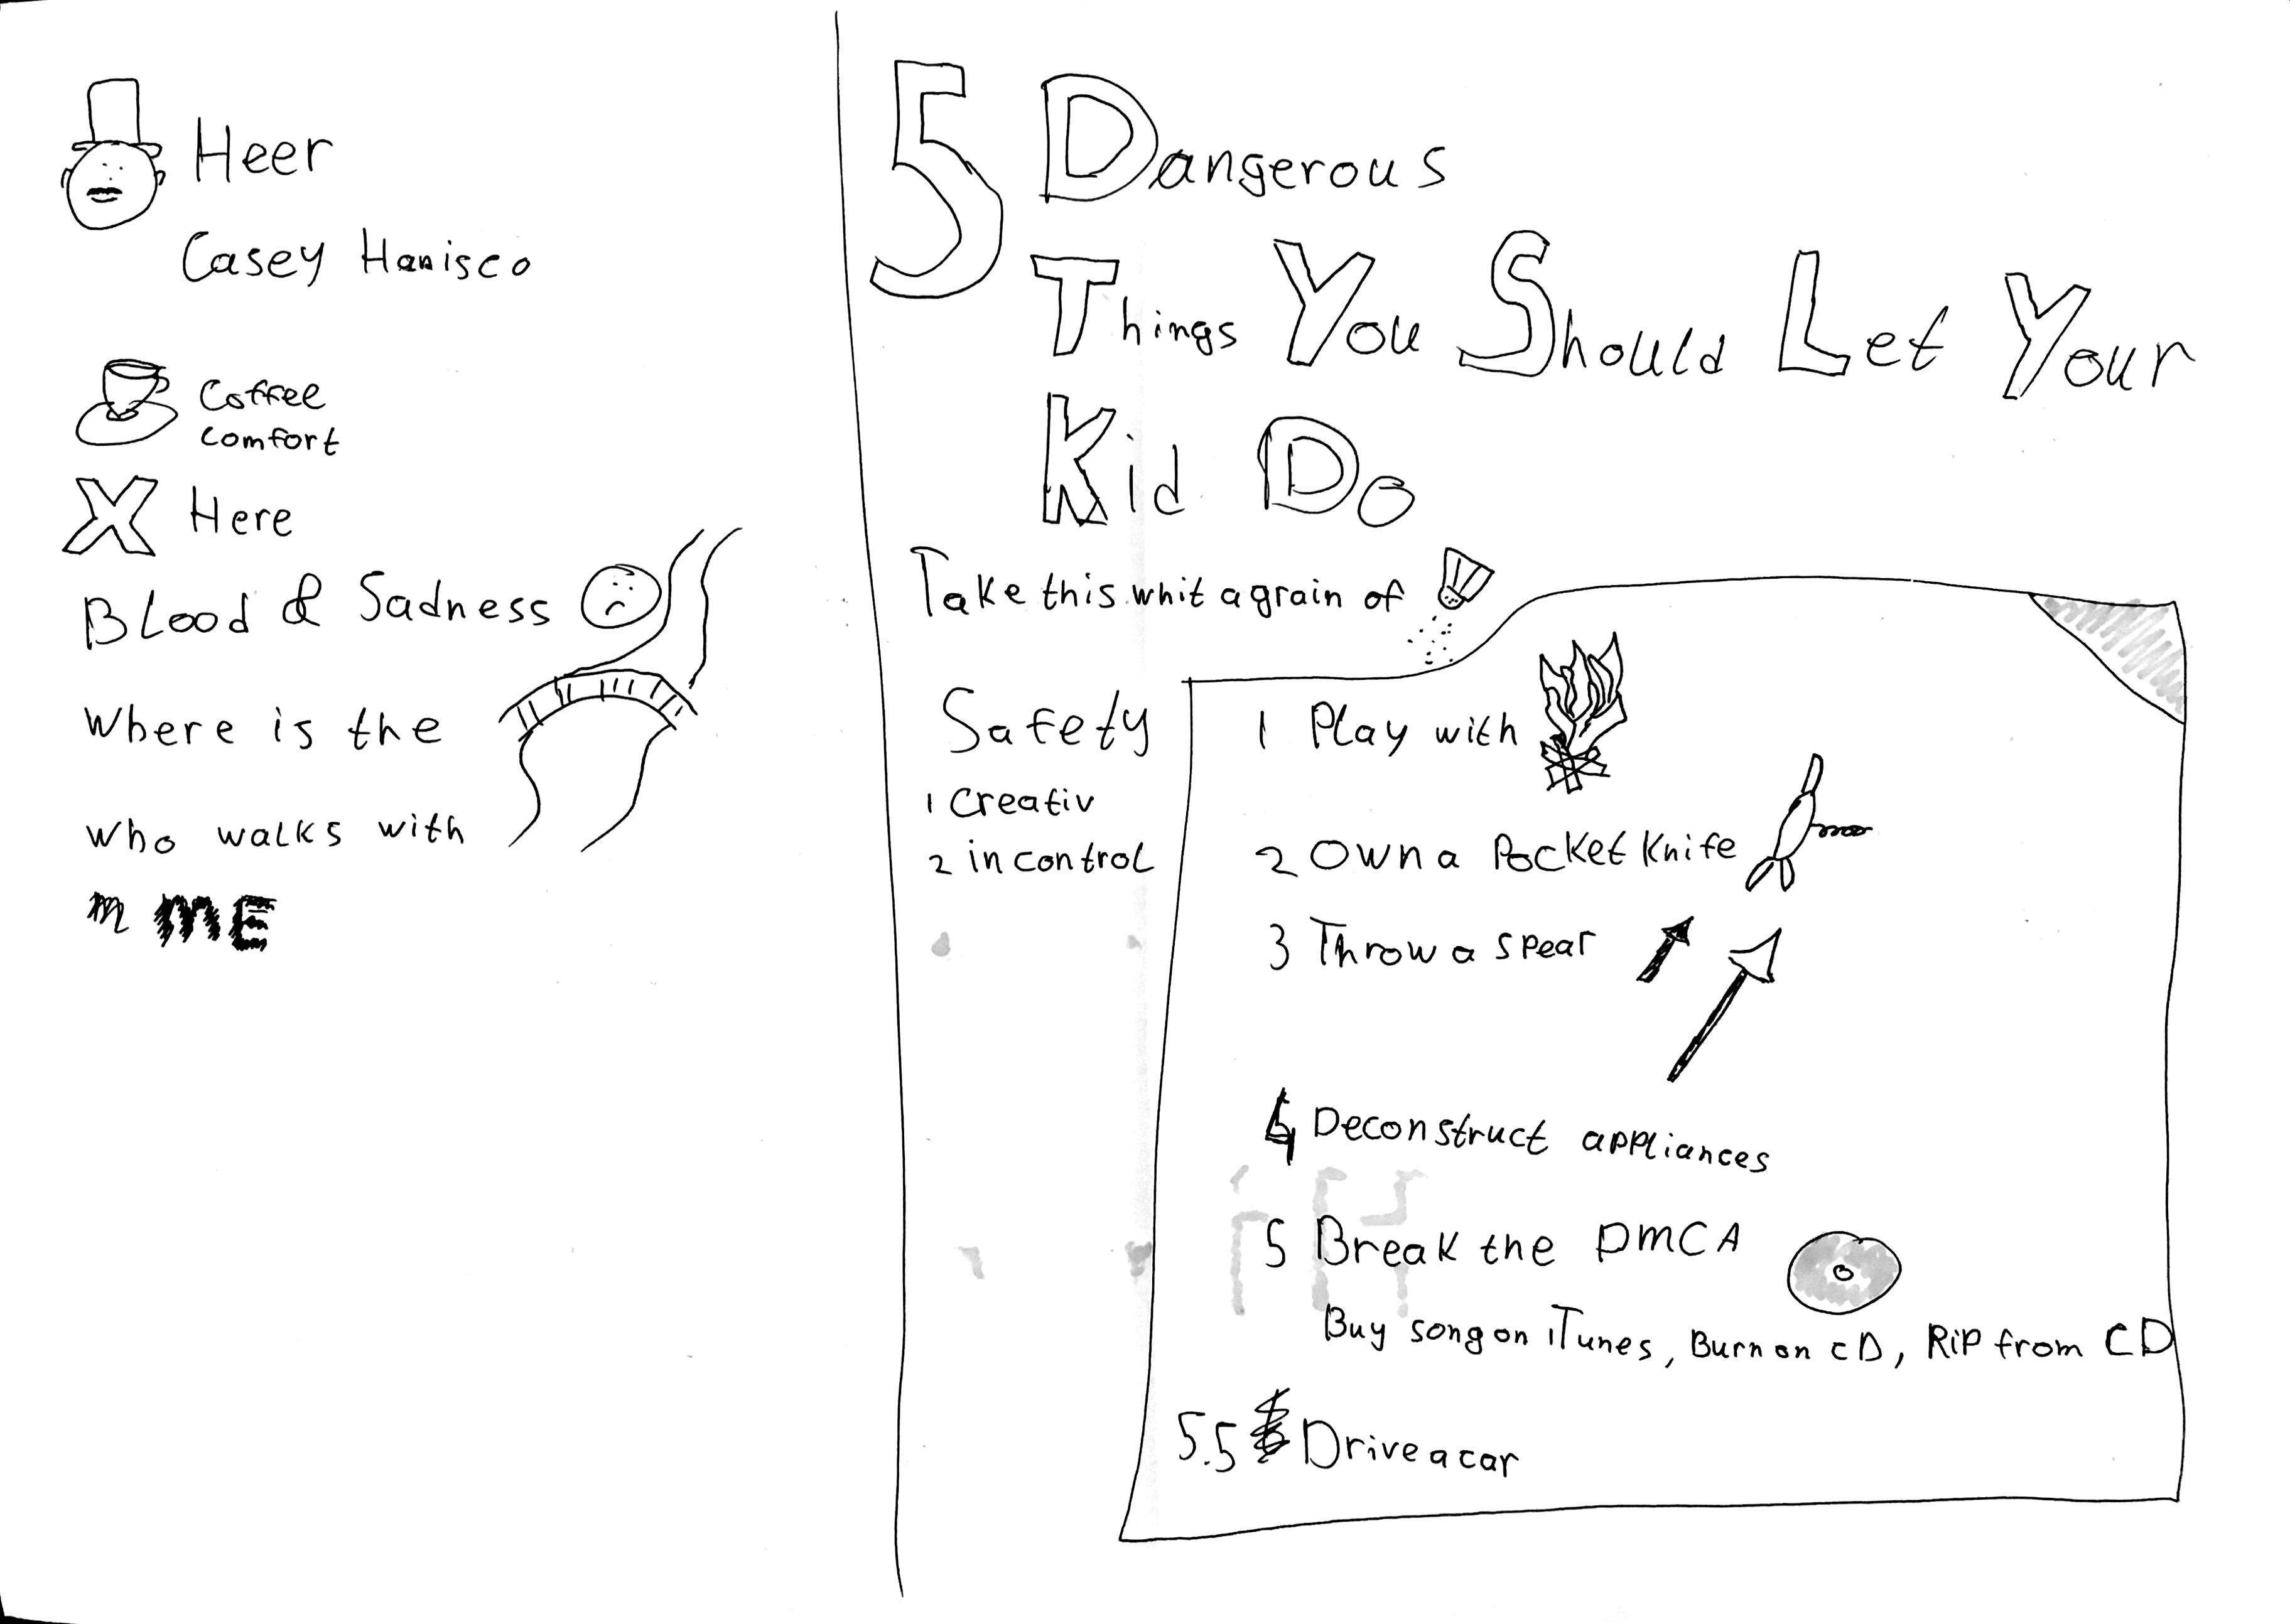 Heer
Casey Hanisco
Coffee
comfort
X Here
Blood & Sadness
where is the
who walks with
m ME
5 Dangerous
Things You Should Let Your
Kid Do
Take this whit a grain of
Safety
1 Creativ
2 in control
1 Play with
2 Own a Pocket Knife
3 Throw a spear
4 Deconstruct appliances
5 Break the DMCA
Buy song on iTunes, Burn on CD, Rip from CD
5.5 Drive a car